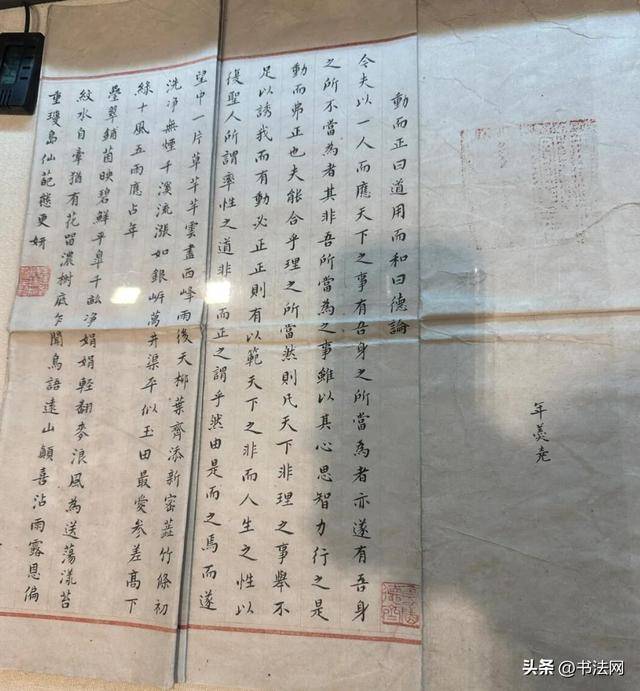 年羹尧
動而正曰道用而和曰德論
今夫以一人而應天下之事有吾身之所當為者亦遂有吾身
之所不當為者其非吾所當為之事雖以其心思智力行之是
動而弗正也夫能合乎理之所當然則凡天下非理之事舉不
足以誘我而有動必正正則有以範天下之非而人生之性以
復聖人所謂率性之道非而正之謂乎然由是而之焉而遂
望中一片草芊芊雲盡西峰雨後天柳葉齊添新密藍竹條初
洗净無煙千溪流漲如銀岸萬井渠平似玉田最愛參差高下
綠十風五雨應占年
疊翠鋪茵映碧鮮平皋千畝净娟娟輕翻麥浪風為送蕩漾苔
紋水自牽猶有花留濃樹底乍聞鳥語遠山顛喜沾雨露恩偏
重瓊島仙葩態更妍
头条 @书法网